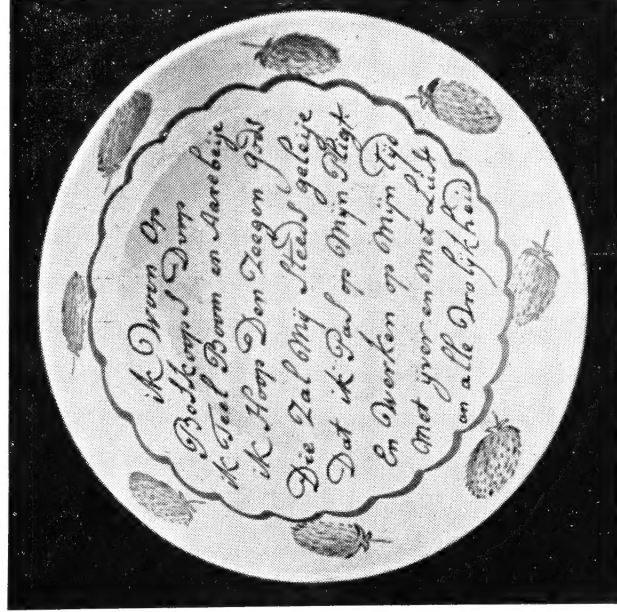 ik Woon Op
Boskoops Dorp
ik Teel Boom en Aarebeije
ik Hoop Den Zeegen gods
Die Zal Mij Steeds geleije
Dat ik Pas op Mijn Pligt
En Werken op Mijn Tijd
Met yver en Met Lust
an alle Vrolijkheid